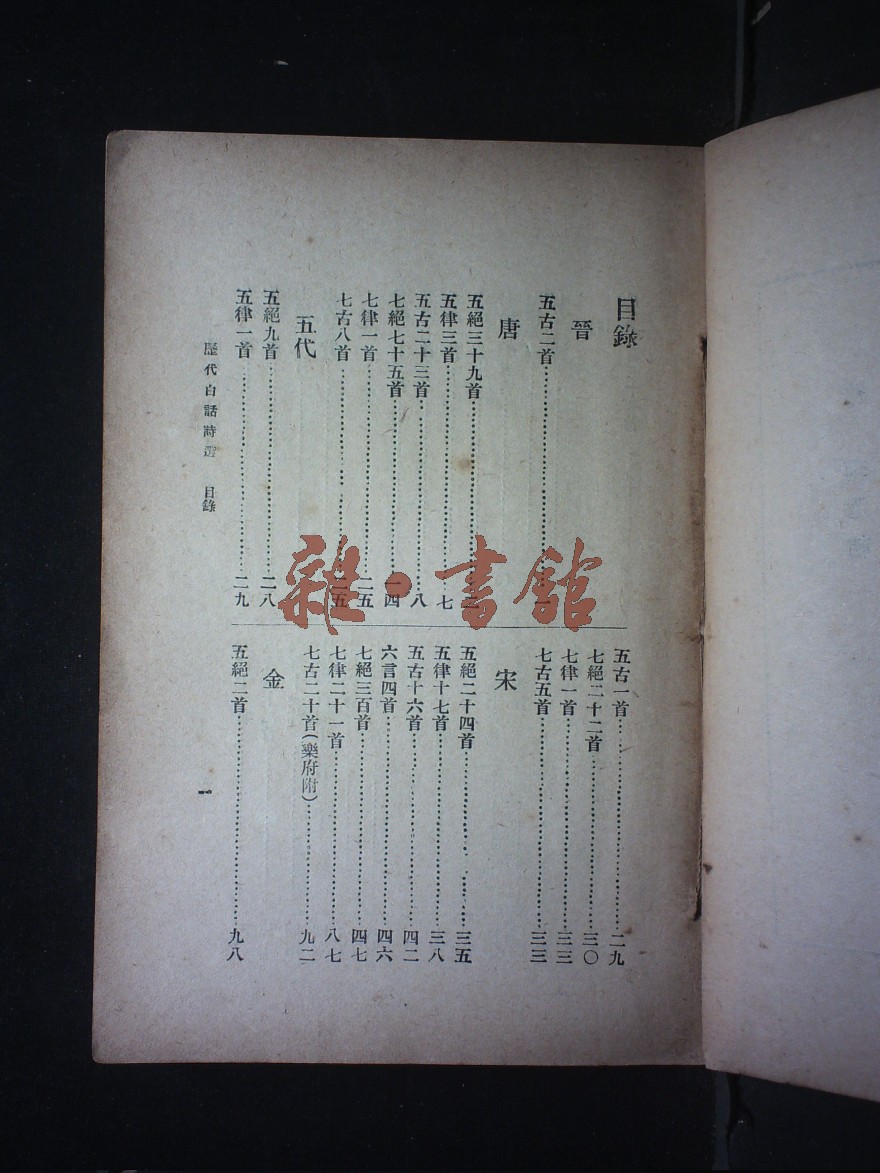 目錄
晉
五古二首
唐
五絕三十九首
五律三首……七
五古二十三首……八
七絕七十五首……一四
七律一首……二五
七古八首……二五
五代
五絕九首……二八
五律一首……二九
五古一首……二九
七絕二十二首……三〇
七律一首……三三
七古五首……三三
宋
五絕二十四首……三五
五律十七首……三八
五古十六首……四二
六言四首……四六
七絕三百首……四七
七律二十一首……八七
七古二十首(樂府附)……九二
金
五絕二首……九八
歷代白話詩選 目錄
一
雜·書館